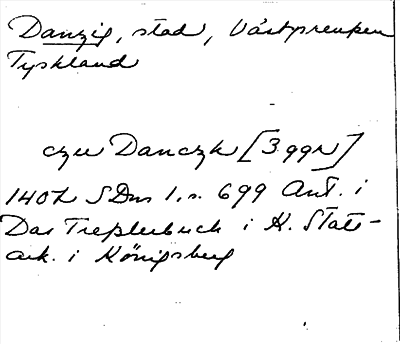 Danzig, stad, Västpreußen
Tyskland
czu Danczk [3 ggr]
1402 SDns 1.s. 699 Ant. i
Das Treßlerbuch i K. Stats-
ark. i Königsberg